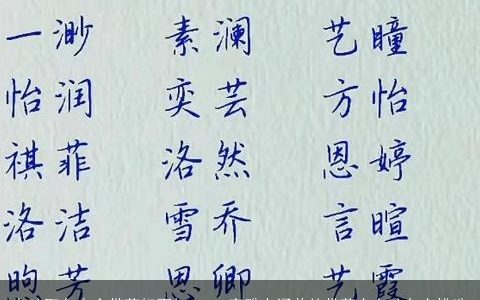 一渺 素澜 艺瞳
怡润 奕芸 方怡
祺菲 洛然 恩婷
洛洁 雪乔 言暄
煦芳 思卿 艺霞